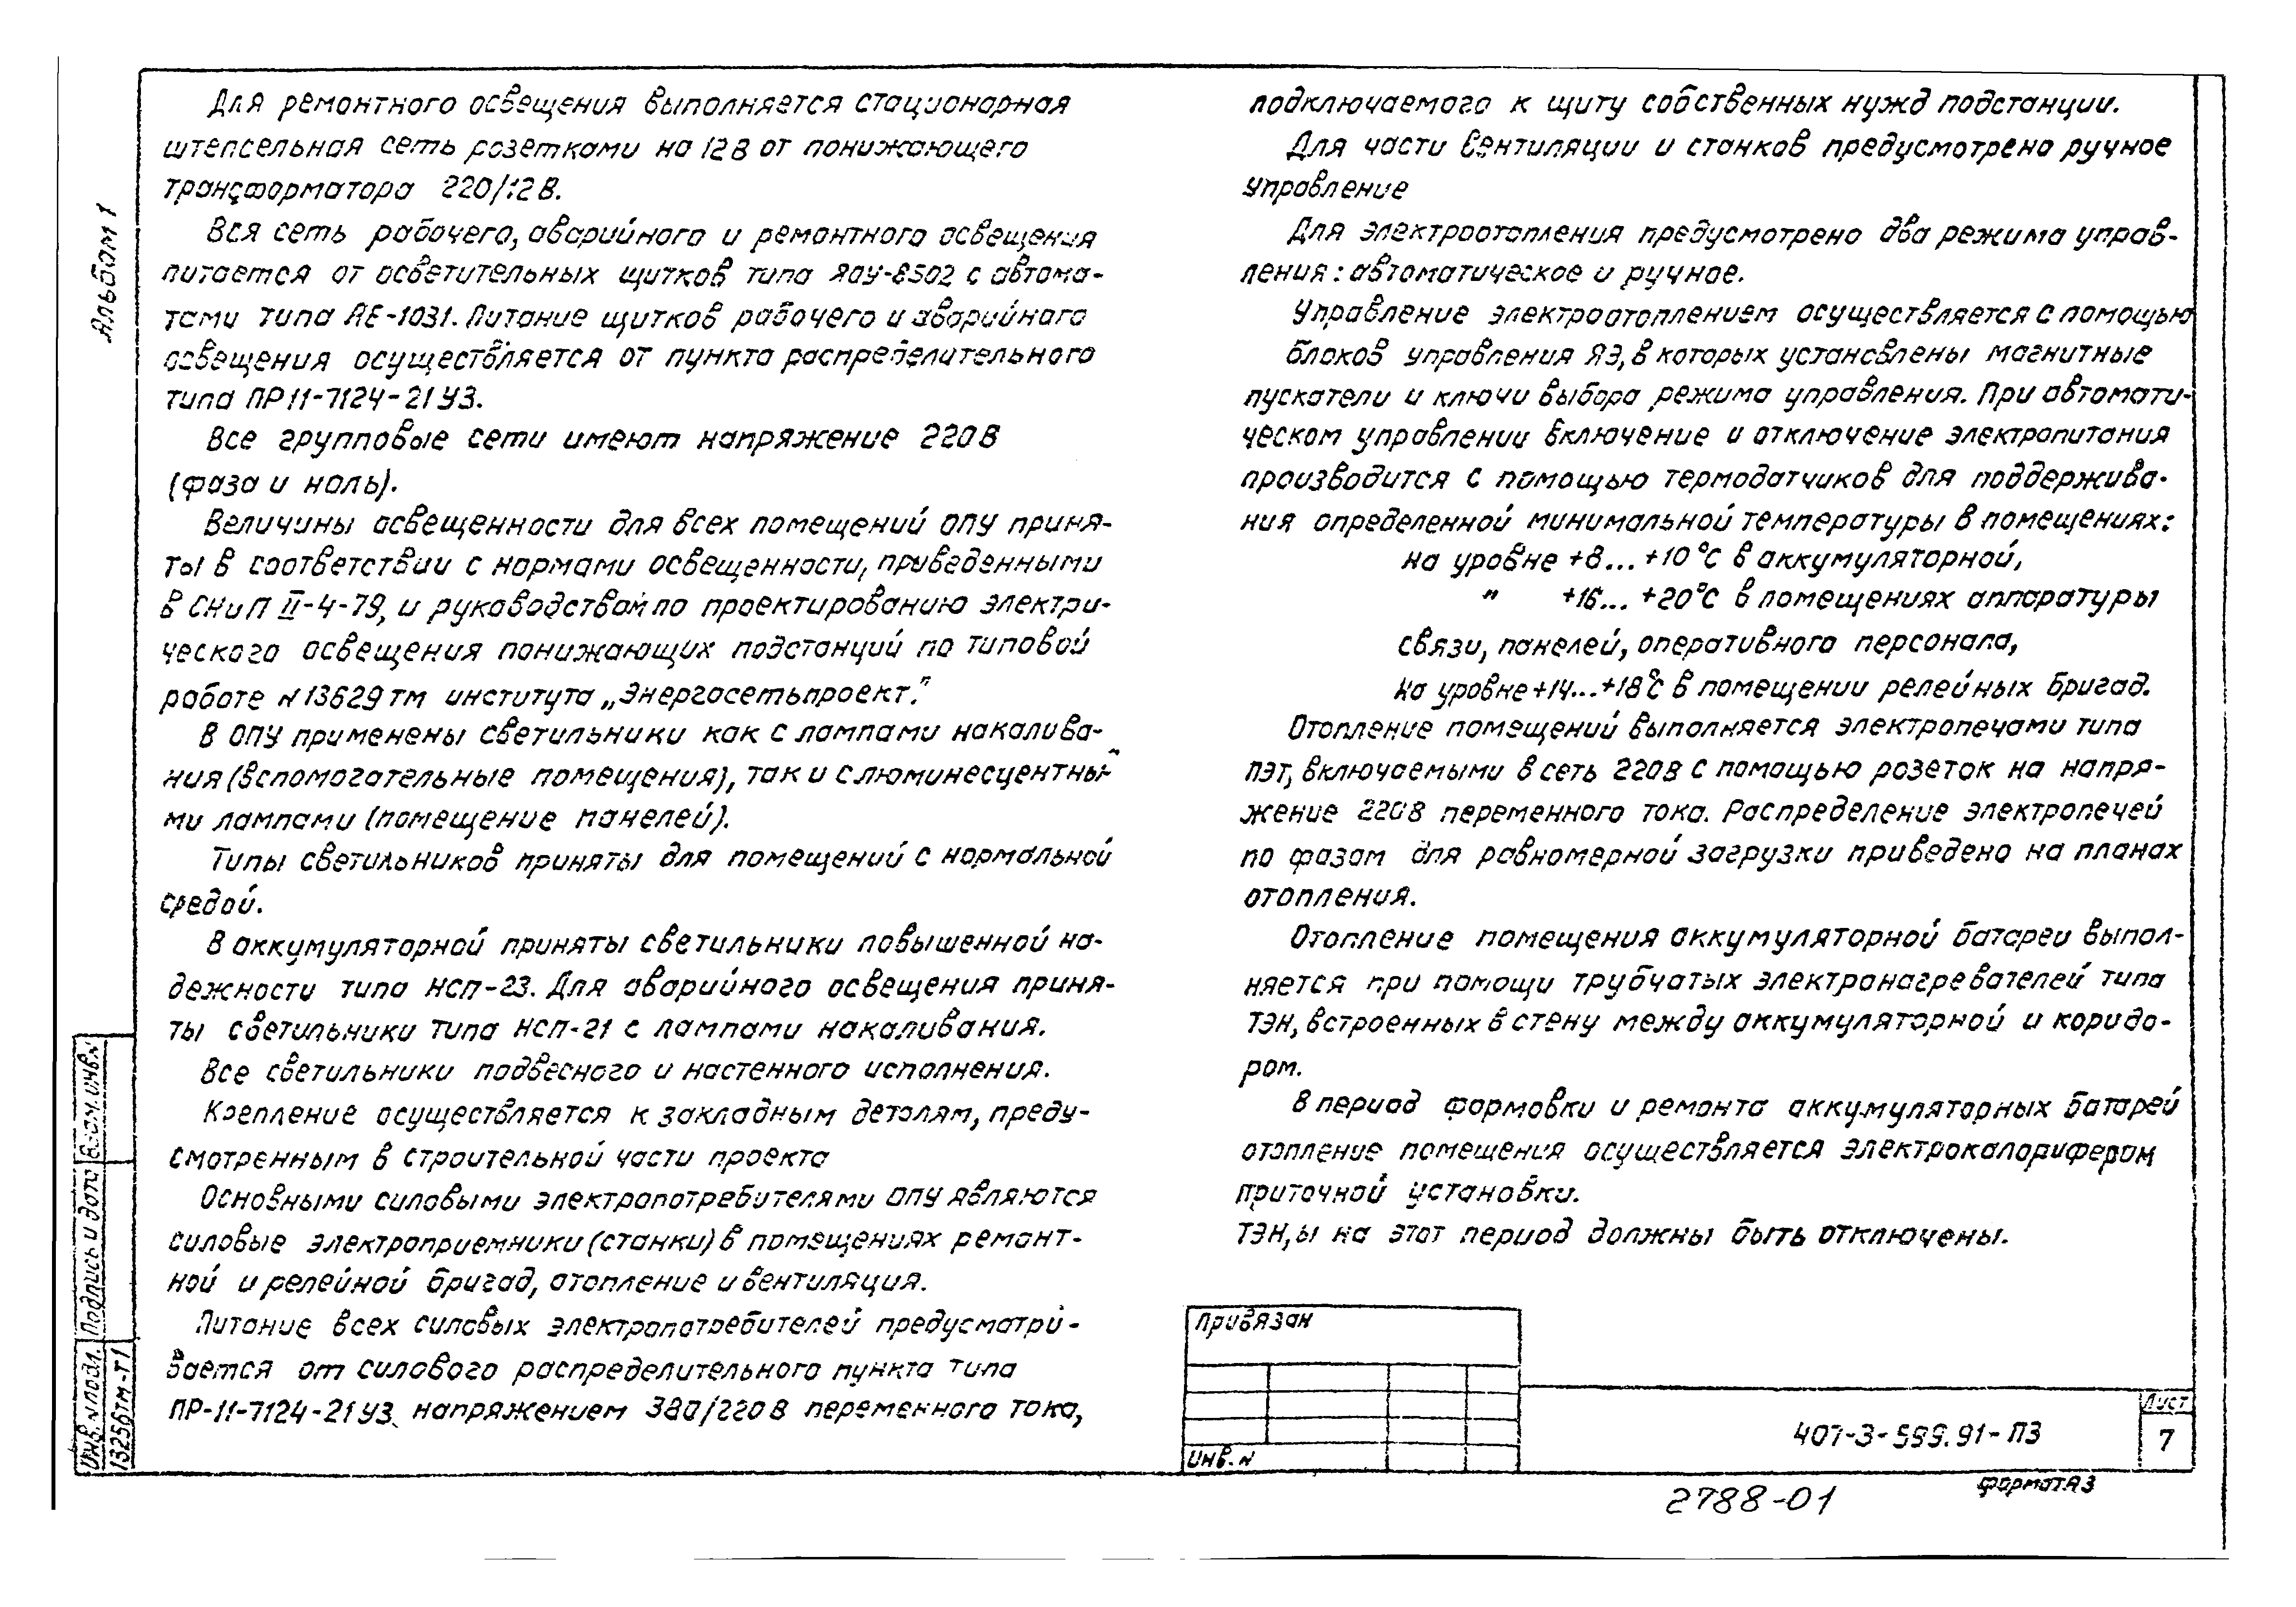 Альбом 1
Для ремонтного освещения выполняется стационарная
штепсельная сеть розетками на 12 В от понижающего
трансформатора 220/12 В.
Вся сеть рабочего, аварийного и ремонтного освещения
питается от осветительных щитков типа ЯОУ-8502 с автома-
тами типа АЕ-1031. Питание щитков рабочего и аварийного
освещения осуществляется от пункта распределительного
типа ПР11-7124-21 У3.
Все групповые сети имеют напряжение 220 В
(фаза и ноль).
Величины освещенности для всех помещений ОПУ приня-
ты в соответствии с нормами освещенности, приведенными
в СНиП II-4-79, и руководством по проектированию электри-
ческого освещения понижающих подстанций по типовой
работе N 13629 тм института „Энергосетьпроект".
В ОПУ применены светильники как с лампами накалива-
ния (вспомогательные помещения), так и с люминесцентны-
ми лампами (помещение панелей).
Типы светильников приняты для помещений с нормальной
средой.
В аккумуляторной приняты светильники повышенной на-
дежности типа НСП-23. Для аварийного освещения приня-
ты светильники типа НСП-21 с лампами накаливания.
Все светильники подвесного и настенного исполнения.
Крепление осуществляется к закладным деталям, преду-
смотренным в строительной части проекта
Основными силовыми электропотребителями ОПУ являются
силовые электроприемники (станки) в помещениях ремонт-
ной и релейной бригад, отопление и вентиляция.
Питание всех силовых электропотребителей предусматри-
вается от силового распределительного пункта типа
ПР-11-7124-21 У3 напряжением 380/220 В переменного тока,
подключаемого к щиту собственных нужд подстанции.
Для части вентиляции и станков предусмотрено ручное
управление
Для электроотопления предусмотрено два режима управ-
ления: автоматическое и ручное.
Управление электроотоплением осуществляется с помощью
блоков управления ЯЭ, в которых установлены магнитные
пускатели и ключи выбора режима управления. При автомати-
ческом управлении включение и отключение электропитания
производится с помощью термодатчиков для поддержива-
ния определенной минимальной температуры в помещениях:
на уровне +8... +10 °С в аккумуляторной,
" +16... +20°С в помещениях аппаратуры
связи, панелей, оперативного персонала,
на уровне +14...+18°С в помещении релейных бригад.
Отопление помещений выполняется электропечами типа
ПЭТ, включаемыми в сеть 220 В с помощью розеток на напря-
жение 220 В переменного тока. Распределение электропечей
по фазам для равномерной загрузки приведено на планах
отопления.
Отопление помещения аккумуляторной батареи выпол-
няется при помощи трубчатых электронагревателей типа
ТЭН, встроенных в стену между аккумуляторной и коридо-
ром.
В период формовки и ремонта аккумуляторных батарей
отопление помещения осуществляется электрокалорифером
приточной установки.
ТЭН,ы на этот период должны быть отключены.
Привязан
Инв. N
407-3-599.91-ПЗ
Лист
7
Формат А3
2788-01
Взам. инв. N
Подпись и дата
Инв. N подл.
13256тм-т1